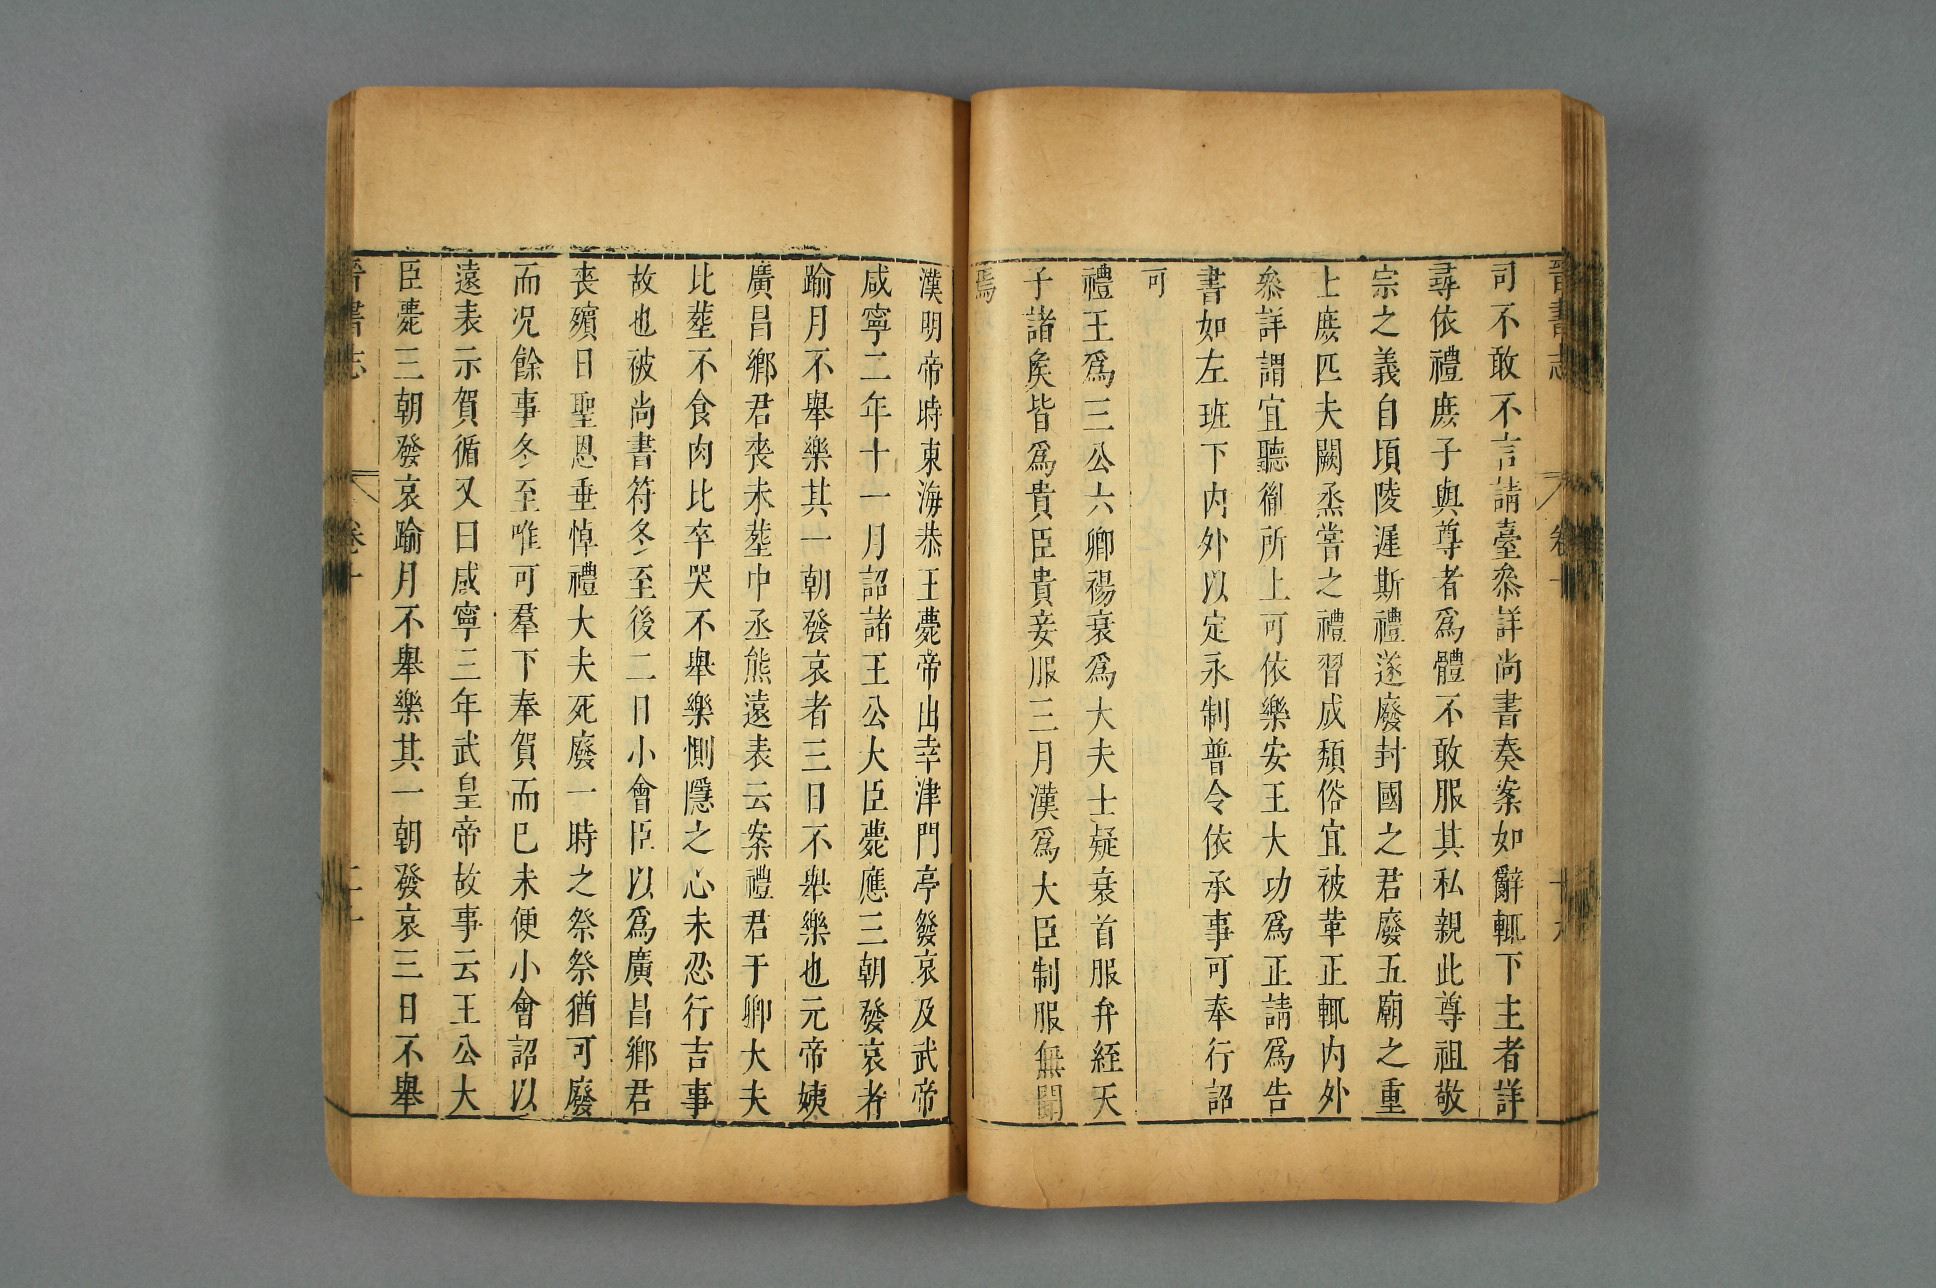 晉書志 卷十
司不敢不言請臺叅詳尚書奏案如辭輒下主者詳
尋依禮庶子與尊者爲體不敢服其私親此尊祖敬
宗之義自頃陵遲斯禮遂廢封國之君廢五廟之重
上庶匹夫闕烝甞之禮習成頽俗宜被革正輒内外
叅詳謂宜聽䘗所上可依樂安王大功爲正請爲告
書如左班下内外以定永制普令依承事可奉行詔
可
禮王爲三公六卿裼衰爲大夫士疑衰首服弁絰天
子諸矦皆爲貴臣貴妾服三月漢爲大臣制服無聞
焉
漢明帝時東海恭王薨帝出幸津門亭發哀及武帝
咸寧二年十一月詔諸王公大臣薨應三朝發哀者
踰月不舉樂其一朝發哀者三日不舉樂也元帝姨
廣昌鄉君喪未葬中丞熊遠表云案禮君于卿大夫
比葬不食肉比卒哭不舉樂惻隱之心未忍行吉事
故也被尚書符冬至後二日小會臣以爲廣昌鄉君
喪殯日聖恩垂悼禮大夫死廢一時之祭祭猶可廢
而况餘事冬至唯可羣下奉賀而已未便小會詔以
遠表示賀循又曰咸寧三年武皇帝故事云王公大
臣薨三朝發哀踰月不舉樂其一朝發哀三日不舉
晉書志 卷十